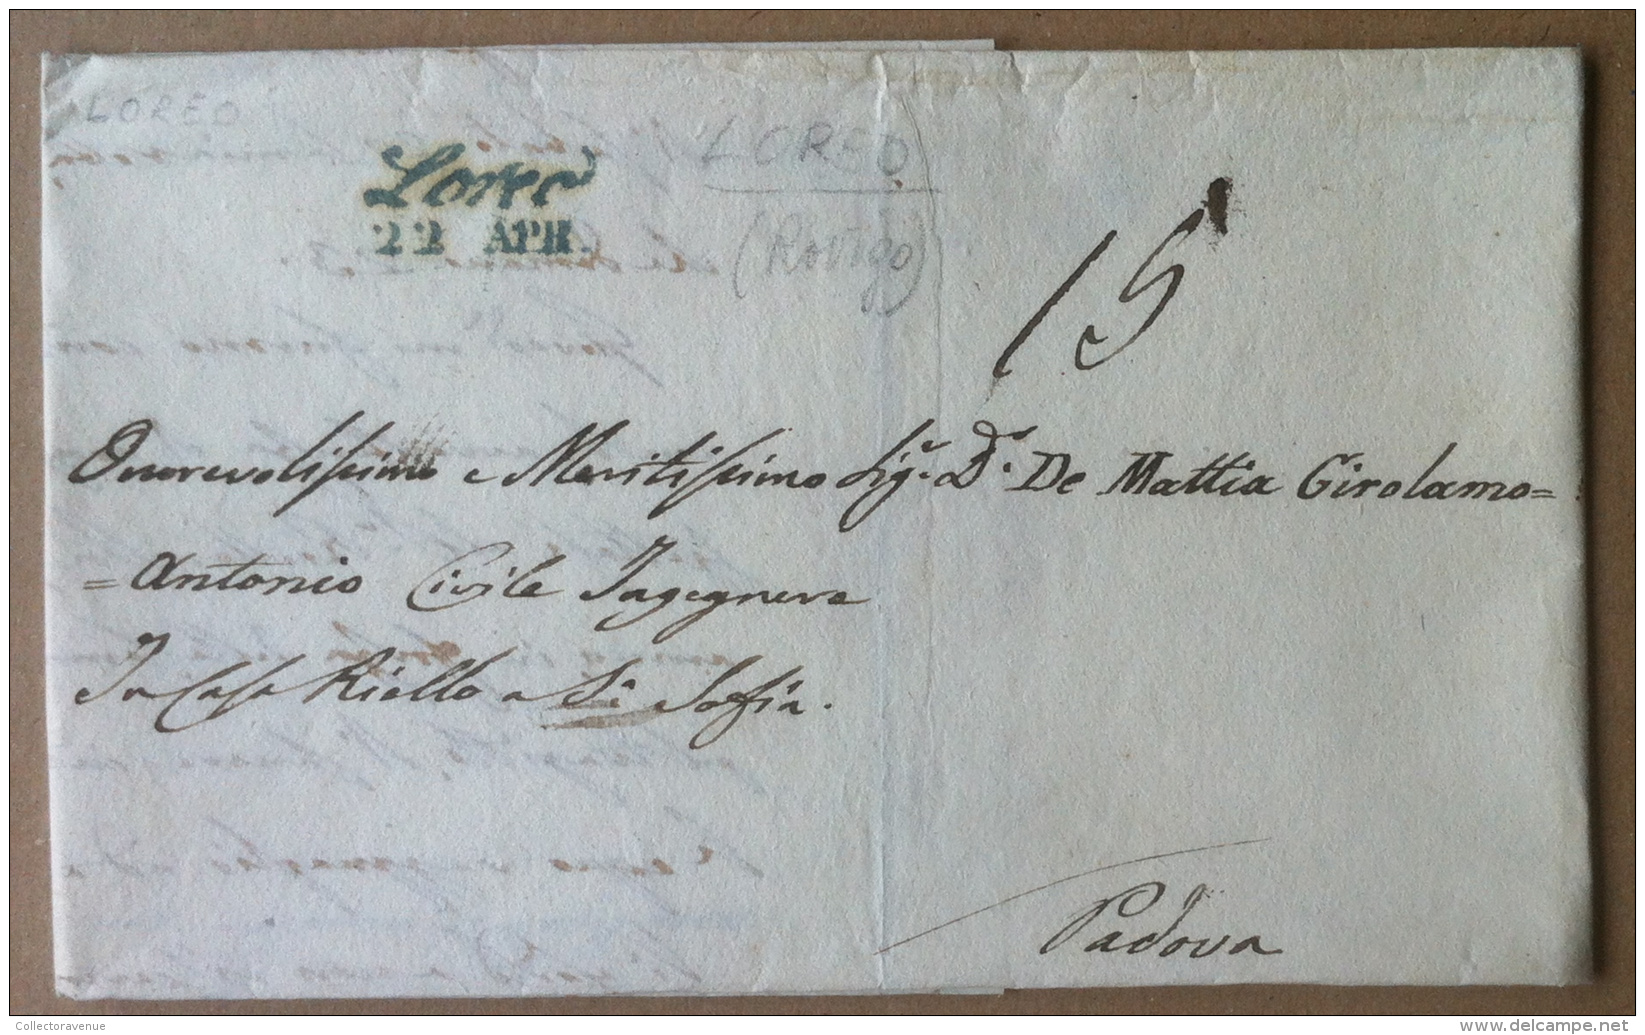 LOREO
LOREO
(Rovigo)
Loreo
22 APR.
15
Onorevolissimo e Meritissimo Sig.r D.r De Mattia Girolamo=
=Antonio Civile Ingegnere
In Casa Riello a S.a Sofia.
Padova
Collectoravenue
www.delcampe.net